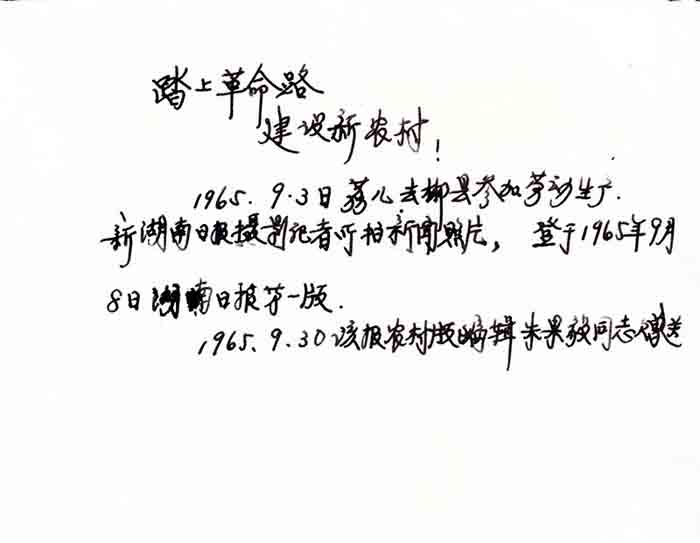 踏上革命路
建设新农村!
1965.9.3日荔儿去郴县参加劳动生产.
新湖南日报摄影记者所拍新闻照片, 登于1965年9月
8日湖南日报第一版.
1965.9.30该报农村版编辑朱果毅同志赠送